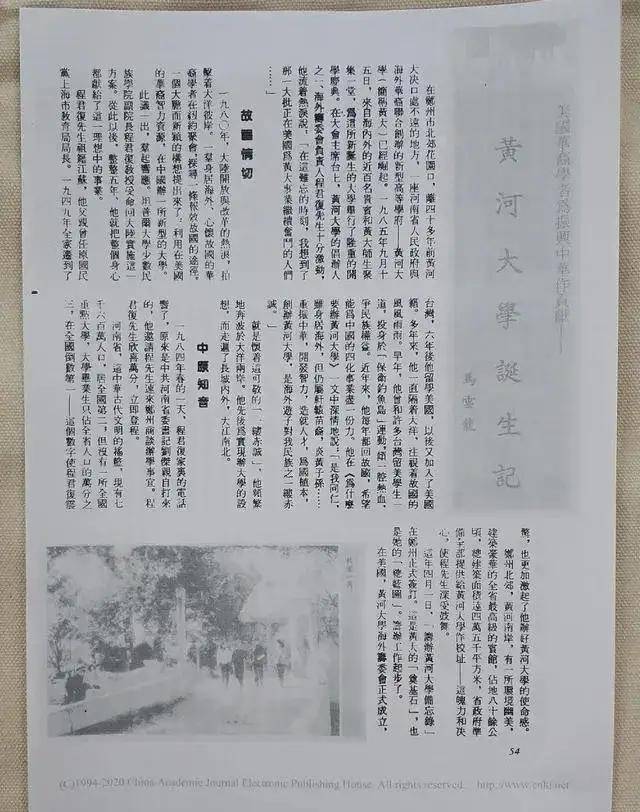 美國華裔學者爲振興中華作貢獻——
黃河大學誕生記
馬雲龍
在鄭州市北郊花園口，離四十多年前黃河
大決口處不遠的地方，一座河南省人民政府與
海外華裔聯合創辦的新型高等學府——黃河大
學（簡稱黃大）已經崛起。一九八五年九月十
五日，來自海內外的近百名貴賓和黃大師生聚
集一堂，爲這所新誕生的大學舉行了隆重的開
學慶典。在大會主席台上，黃河大學的倡辦人
之一，海外籌委會負責人程君復先生十分激動，
他流着熱淚說：「在這難忘的時刻，我想到了
那一大批正在美國爲黃大事業繼續奮鬥的人們
……」
故園情切
一九八〇年，大陸開放與改革的熱浪，拍
擊着大洋彼岸。一羣身居海外，心懷故國的華
裔學者在紐約聚會，探尋一條報效故國的途徑。
一個大膽而新穎的構想提出來了：利用在美國
的華裔智力資源，在中國辦一所新型的大學。
此議一出，羣起響應。坦普爾大學少數民
族學院副院長程君復教授受命回大陸實施這一
方案。從此以後，整整五年，他就把整個身心
都獻給了這一理想中的事業。
程君復先生祖籍江蘇，他父親曾任原國民
黨上海市教育局局長。一九四九年全家遷到了
台灣，六年後他留學美國，以後又加入了美國
籍。多年來，他一直隔着大洋，注視着故國的
風風雨雨。早年，他曾和許多台灣留美學生一
道，投身於「保衛釣魚島」運動，傾一腔熱血，
爭民族權益。近年來，他每年都回故國，希望
能爲中國的四化事業盡一份力。他在《爲什麼
要辦黃河大學》一文中深情地說：「是我同仁，
雖身居海外，但仍屬軒轅苗裔，炎黃子孫……
重振中華，開發智力，造就人才，爲國植本，
創辦黃河大學，是海外遊子對我民族之一縷赤
誠。」
就是懷着這可敬的「一縷赤誠」，他頻繁
地奔波於大洋兩岸。他先後爲實現辦大學的設
想，而走遍了長城內外，大江南北。
中原知音
一九八四年春的一天，程君復家裏的電話
響了，原來是中共河南省委書記劉傑親自打來
的，他邀請程先生速來鄭州商談辦學事宜。程
君復先生欣喜萬分，立即登程。
河南省，這中華古代文明的搖籃，現有七
千六百萬人口，居全國第二，但沒有一所全國
重點大學，大學畢業生只佔全省人口的萬分之
三，在全國倒數第一——這個數字使程君復震
驚，也更加激起了他辦好黃河大學的使命感。
鄭州北郊，黃河南岸，有一所環境幽美，
建築豪華的全省最高級的賓館，佔地八十餘公
頃，總建築面積達四萬五千平方米，省政府準
備全部提供給黃河大學作校址——這魄力和決
心，使程先生深受鼓舞。
這年四月一日，「籌辦黃河大學備忘錄」
在鄭州正式簽訂。這是黃大的「奠基石」，也
是她的「總藍圖」。籌辦工作起步了。
在美國，黃河大學海外籌委會正式成立，
54
(C)1994-2020 China Academic Journal Electronic Publishing House. All rights reserved. http://www.cnki.net